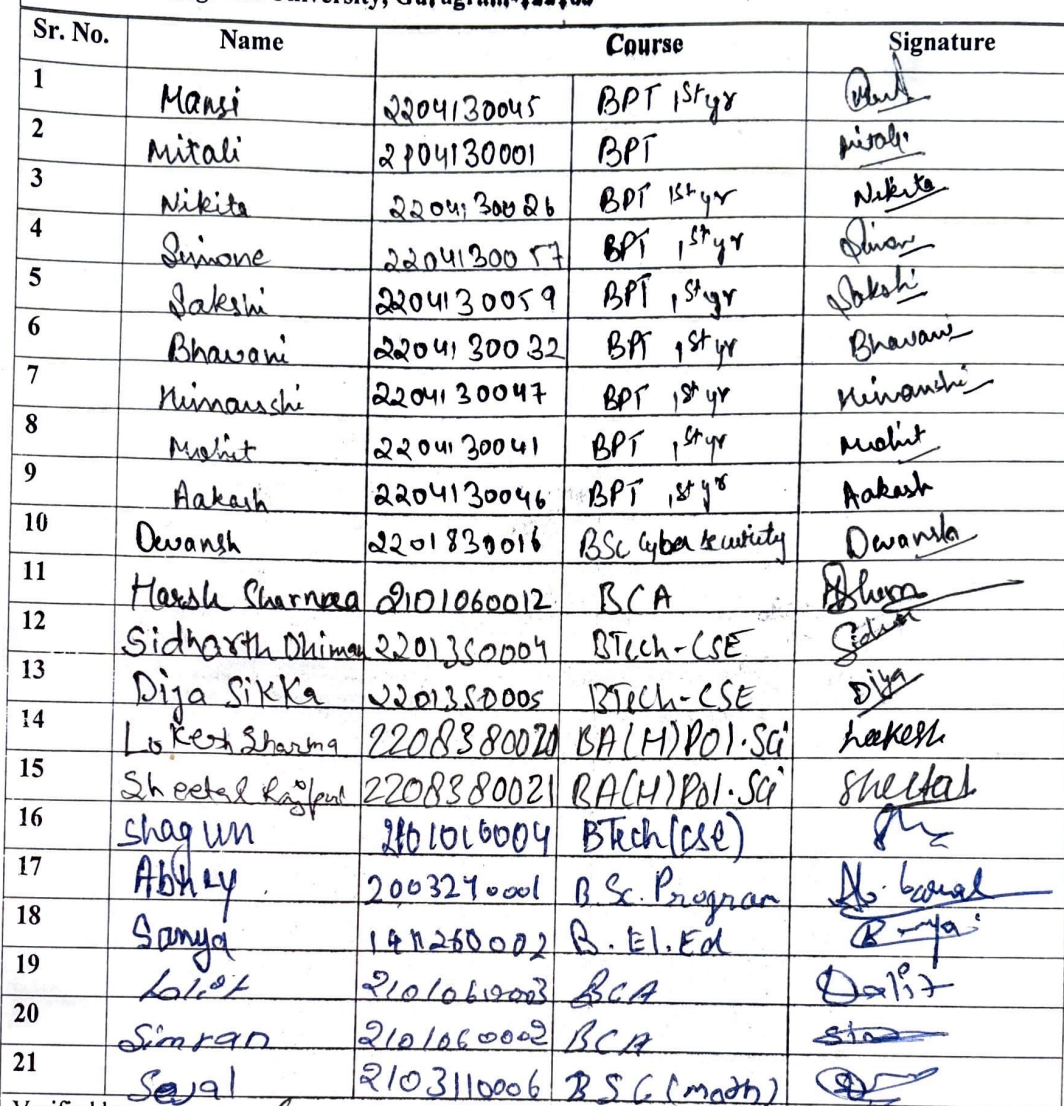 University, Gurugram-122103
Sr. No. Name Course Signature
1 Mansi 2204130045 BPT 1st yr
2 Mitali 2104130001 BPT Mitali
3 Nikita 2204130026 BPT 1st yr Nikita
4 Simone 2204130057 BPT 1st yr Simone
5 Sakshi 2204130059 BPT 1st yr Sakshi
6 Bhavani 2204130032 BPT 1st yr Bhavani
7 Himanshi 2204130047 BPT 1st yr Himanshi
8 Mohit 2204130041 BPT 1st yr Mohit
9 Aakash 2204130046 BPT 1st yr Aakash
10 Devansh 2201830016 BSc Cyber Security Devansh
11 Harsh Sharma 2101060012 BCA
12 Sidharth Dhiman 2201350004 BTech-CSE
13 Diya Sikka 2201350005 BTech-CSE Diya
14 Lokesh Sharma 2208380020 BA(H)Pol.Sci Lokesh
15 Sheetal Rajput 2208380021 BA(H)Pol.Sci Sheetal
16 Shagun 2101010004 BTech(CSE)
17 Abhay 2003270001 B.Sc. Program
18 Sanya B.El.Ed
19 Lalit BCA Lalit
20 Simran 2101060002 BCA
21 Sejal 2103110006 BSC (math)